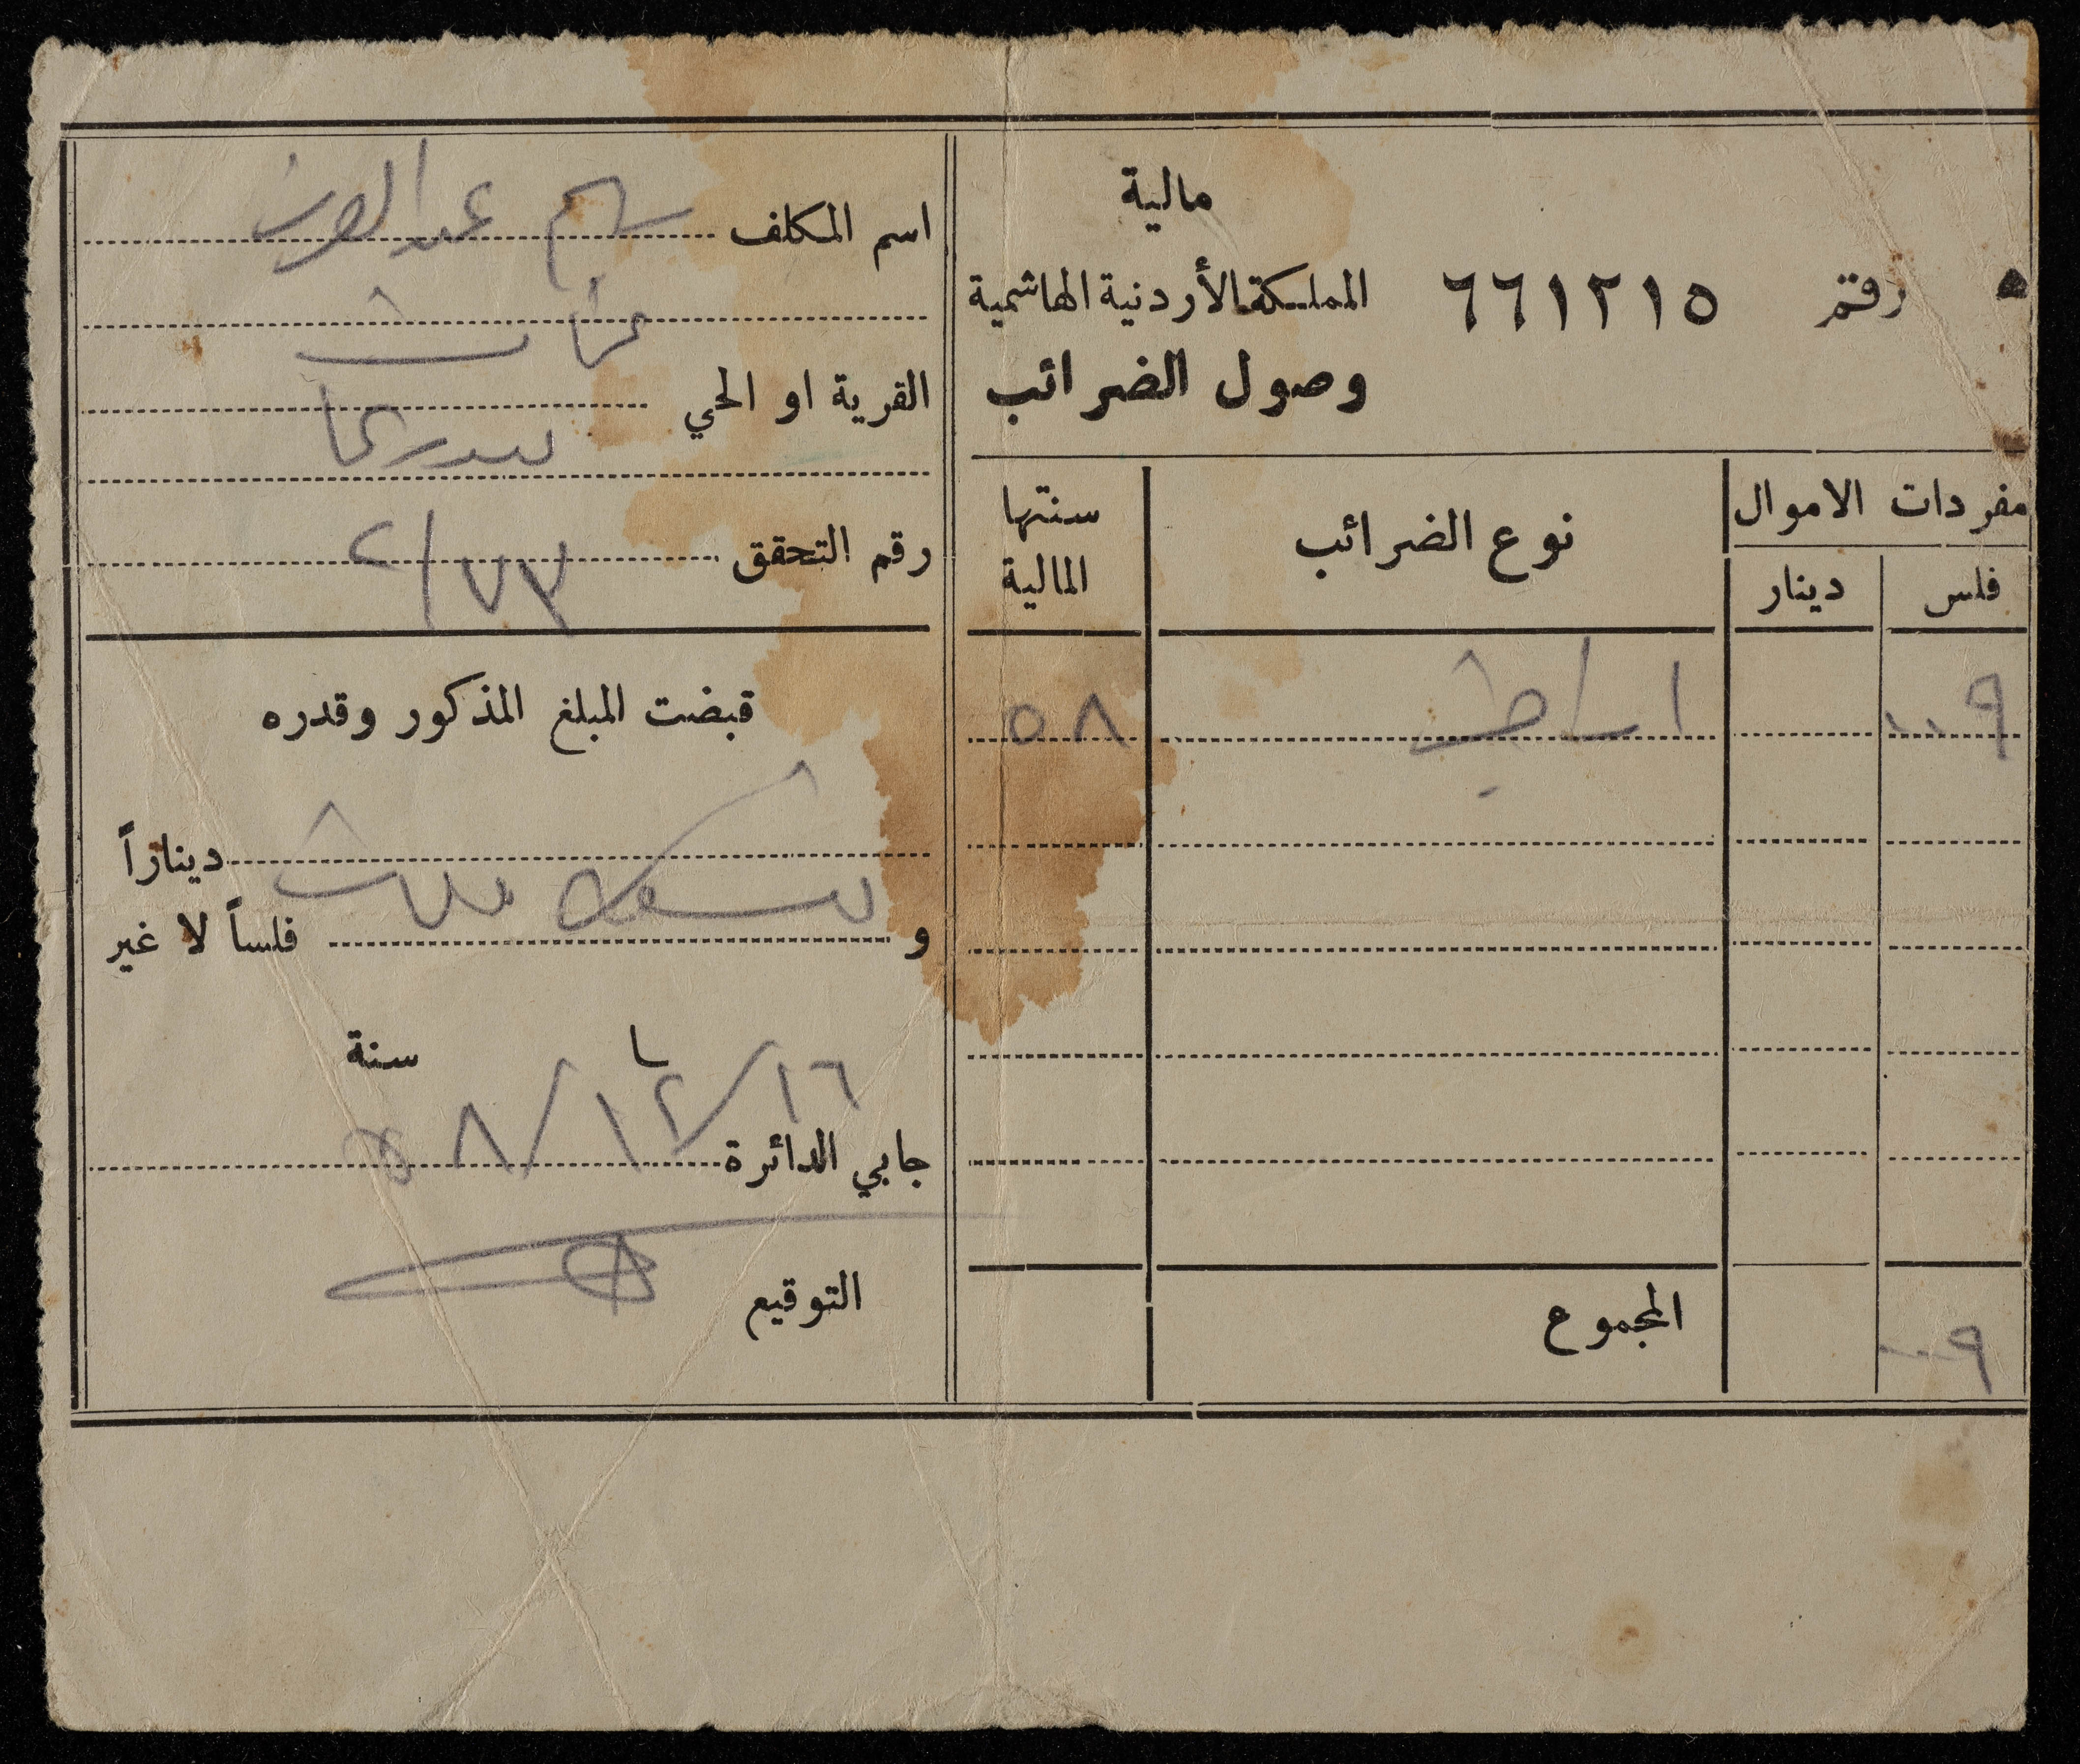 مالية
رقم ٦٦١٢١٥ المملكة الأردنية الهاشمية
وصول الضرائب
مفردات الاموال
فلس دينار
نوع الضرائب
سنتها المالية
٠٠٩ اراضي ٥٨
المجموع
٠٠٩
اسم المكلف عبد
القرية او الحي
رقم التحقق ٢/٧٣
قبضت المبلغ المذكور وقدره
ديناراً
و تسعة فلسات فلساً لا غير
سنة
١٦/١٢/٥٨
جابي الدائرة
التوقيع